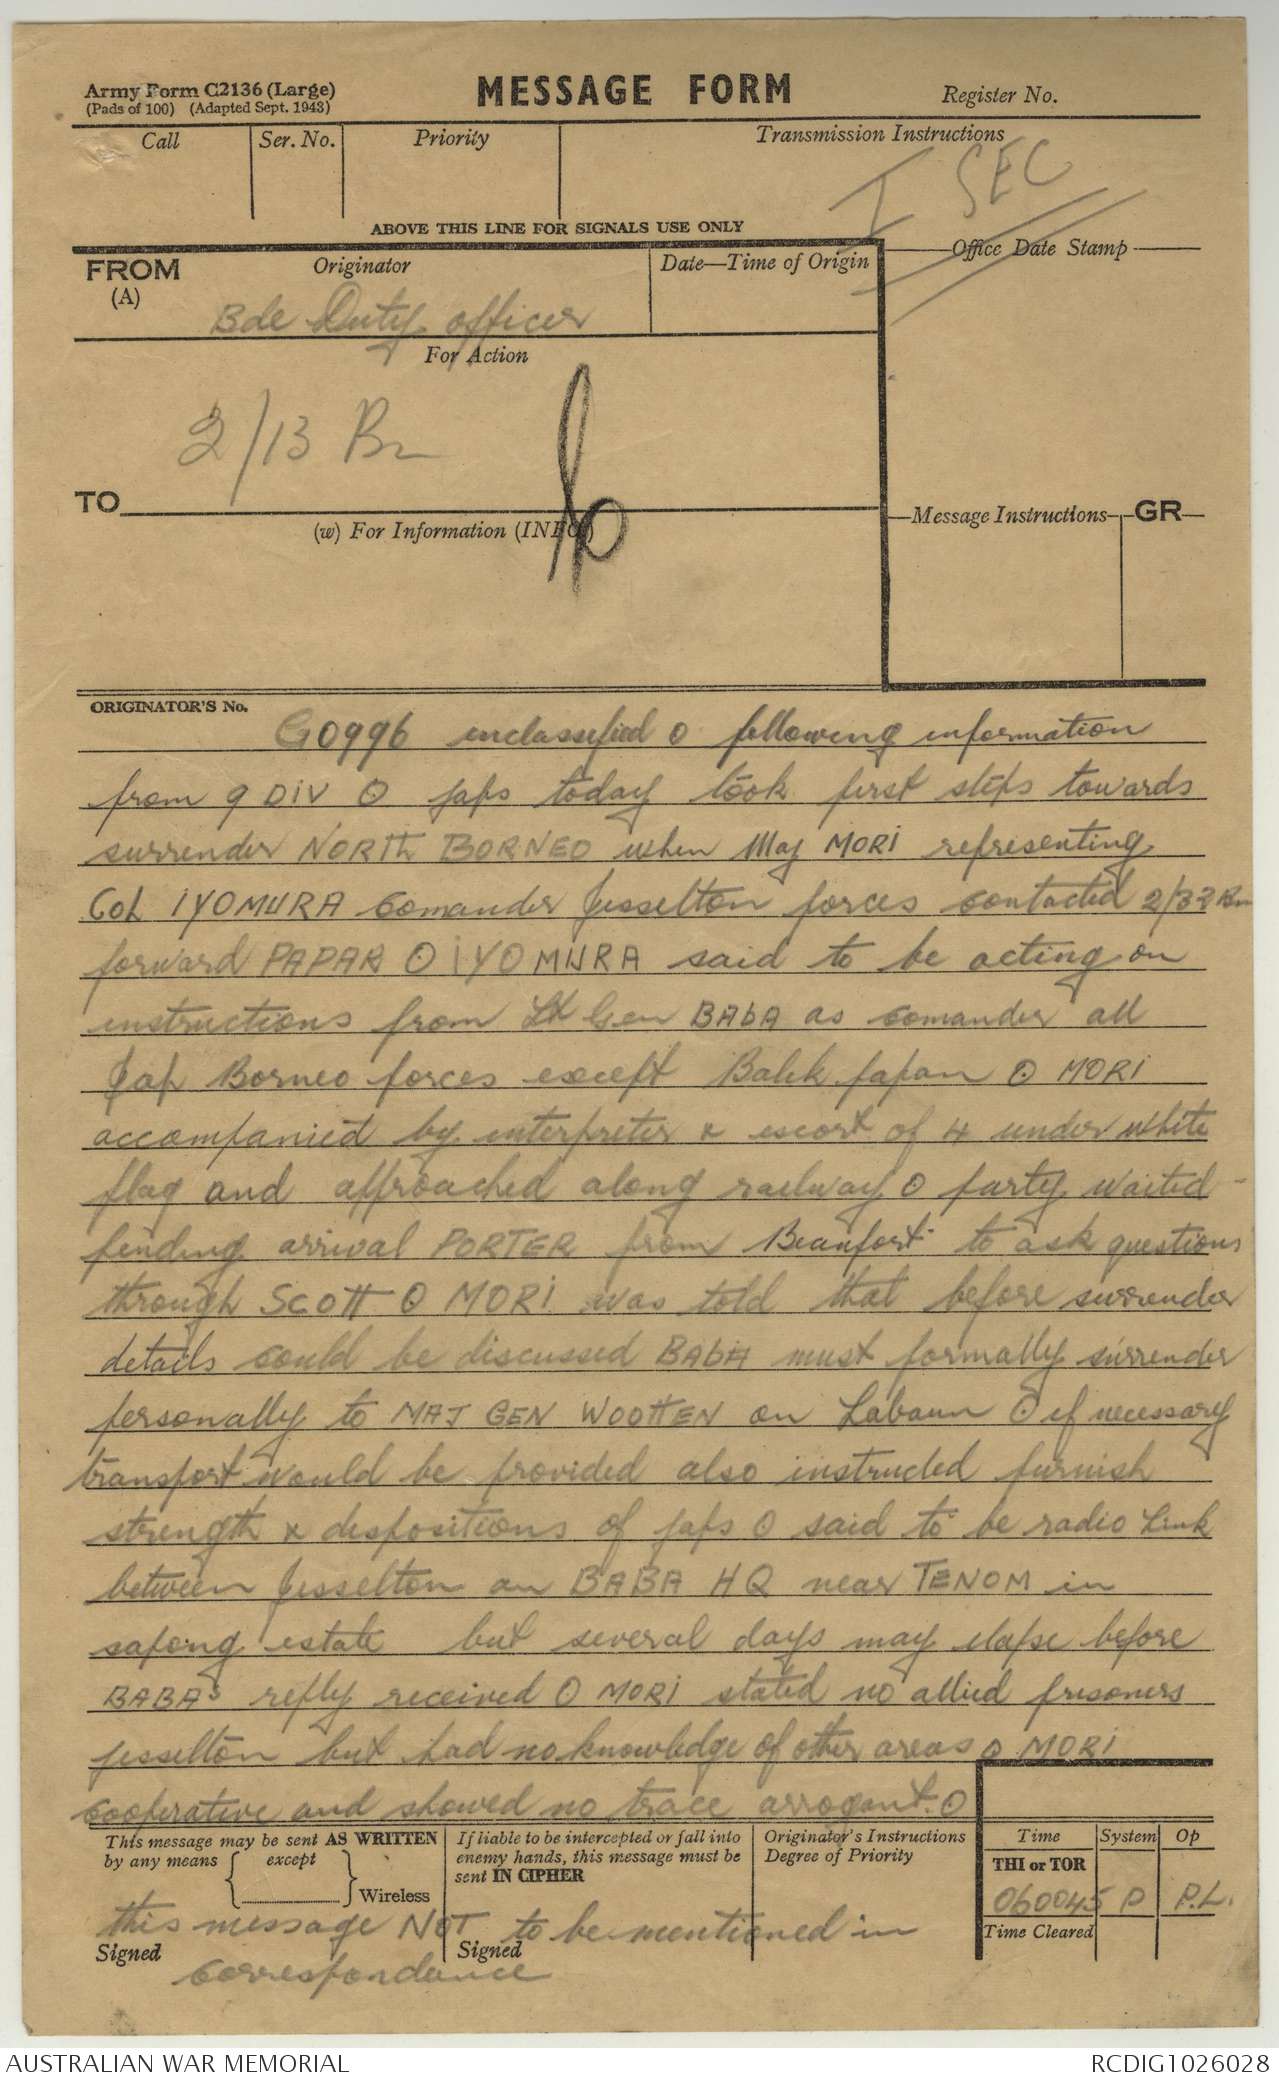 Army Form C2136 (Large)
(Pads of 100) (Adapted Sept. 1943)
MESSAGE FORM
Register No.
Call
Ser. No.
Priority
Transmission Instructions
I SEC
ABOVE THIS LINE FOR SIGNALS USE ONLY
FROM
(A)
Originator
Date—Time of Origin
Office Date Stamp
Bde Duty officer
For Action
2/13 Bn
TO
(w) For Information (INFO)
Message Instructions
GR
ORIGINATOR'S No.
GO996 unclassified O following information
from 9 DIV O Japs today took first steps towards
surrender NORTH BORNEO when Maj MORI representing
Col IYOMURA Comander Jesselton forces contacted 2/32 Bn
forward PAPAR O IYOMURA said to be acting on
instructions from Lt Gen BAbA as comander all
Jap Borneo forces except Balik papan O MORI
accompanied by interpreter & escort of 4 under white
flag and approached along railway O party waited
pending arrival PORTER from Beaufort to ask questions
through SCOTT O MORI was told that before surrender
details could be discussed BAbA must formally surrender
personally to MAJ GEN WOOTTEN on Labaun O if necessary
transport would be provided also instructed furnish
strength & dispositions of Japs O said to be radio Link
between Jesselton an BABA HQ near TENOM in
sapong estate but several days may elapse before
BABAs reply received O MORI stated no allied prisoners
jesselton but had no knowledge of other areas O MORI
cooperative and showed no trace arrogant. O
This message may be sent AS WRITTEN
by any means except
Wireless
If liable to be intercepted or fall into
enemy hands, this message must be
sent IN CIPHER
Originator's Instructions
Degree of Priority
Time
System
Op
THI or TOR
060045 P P.L.
Time Cleared
this message NOT to be mentioned in
Signed
Signed
correspondance
AUSTRALIAN WAR MEMORIAL
RCDIG1026028